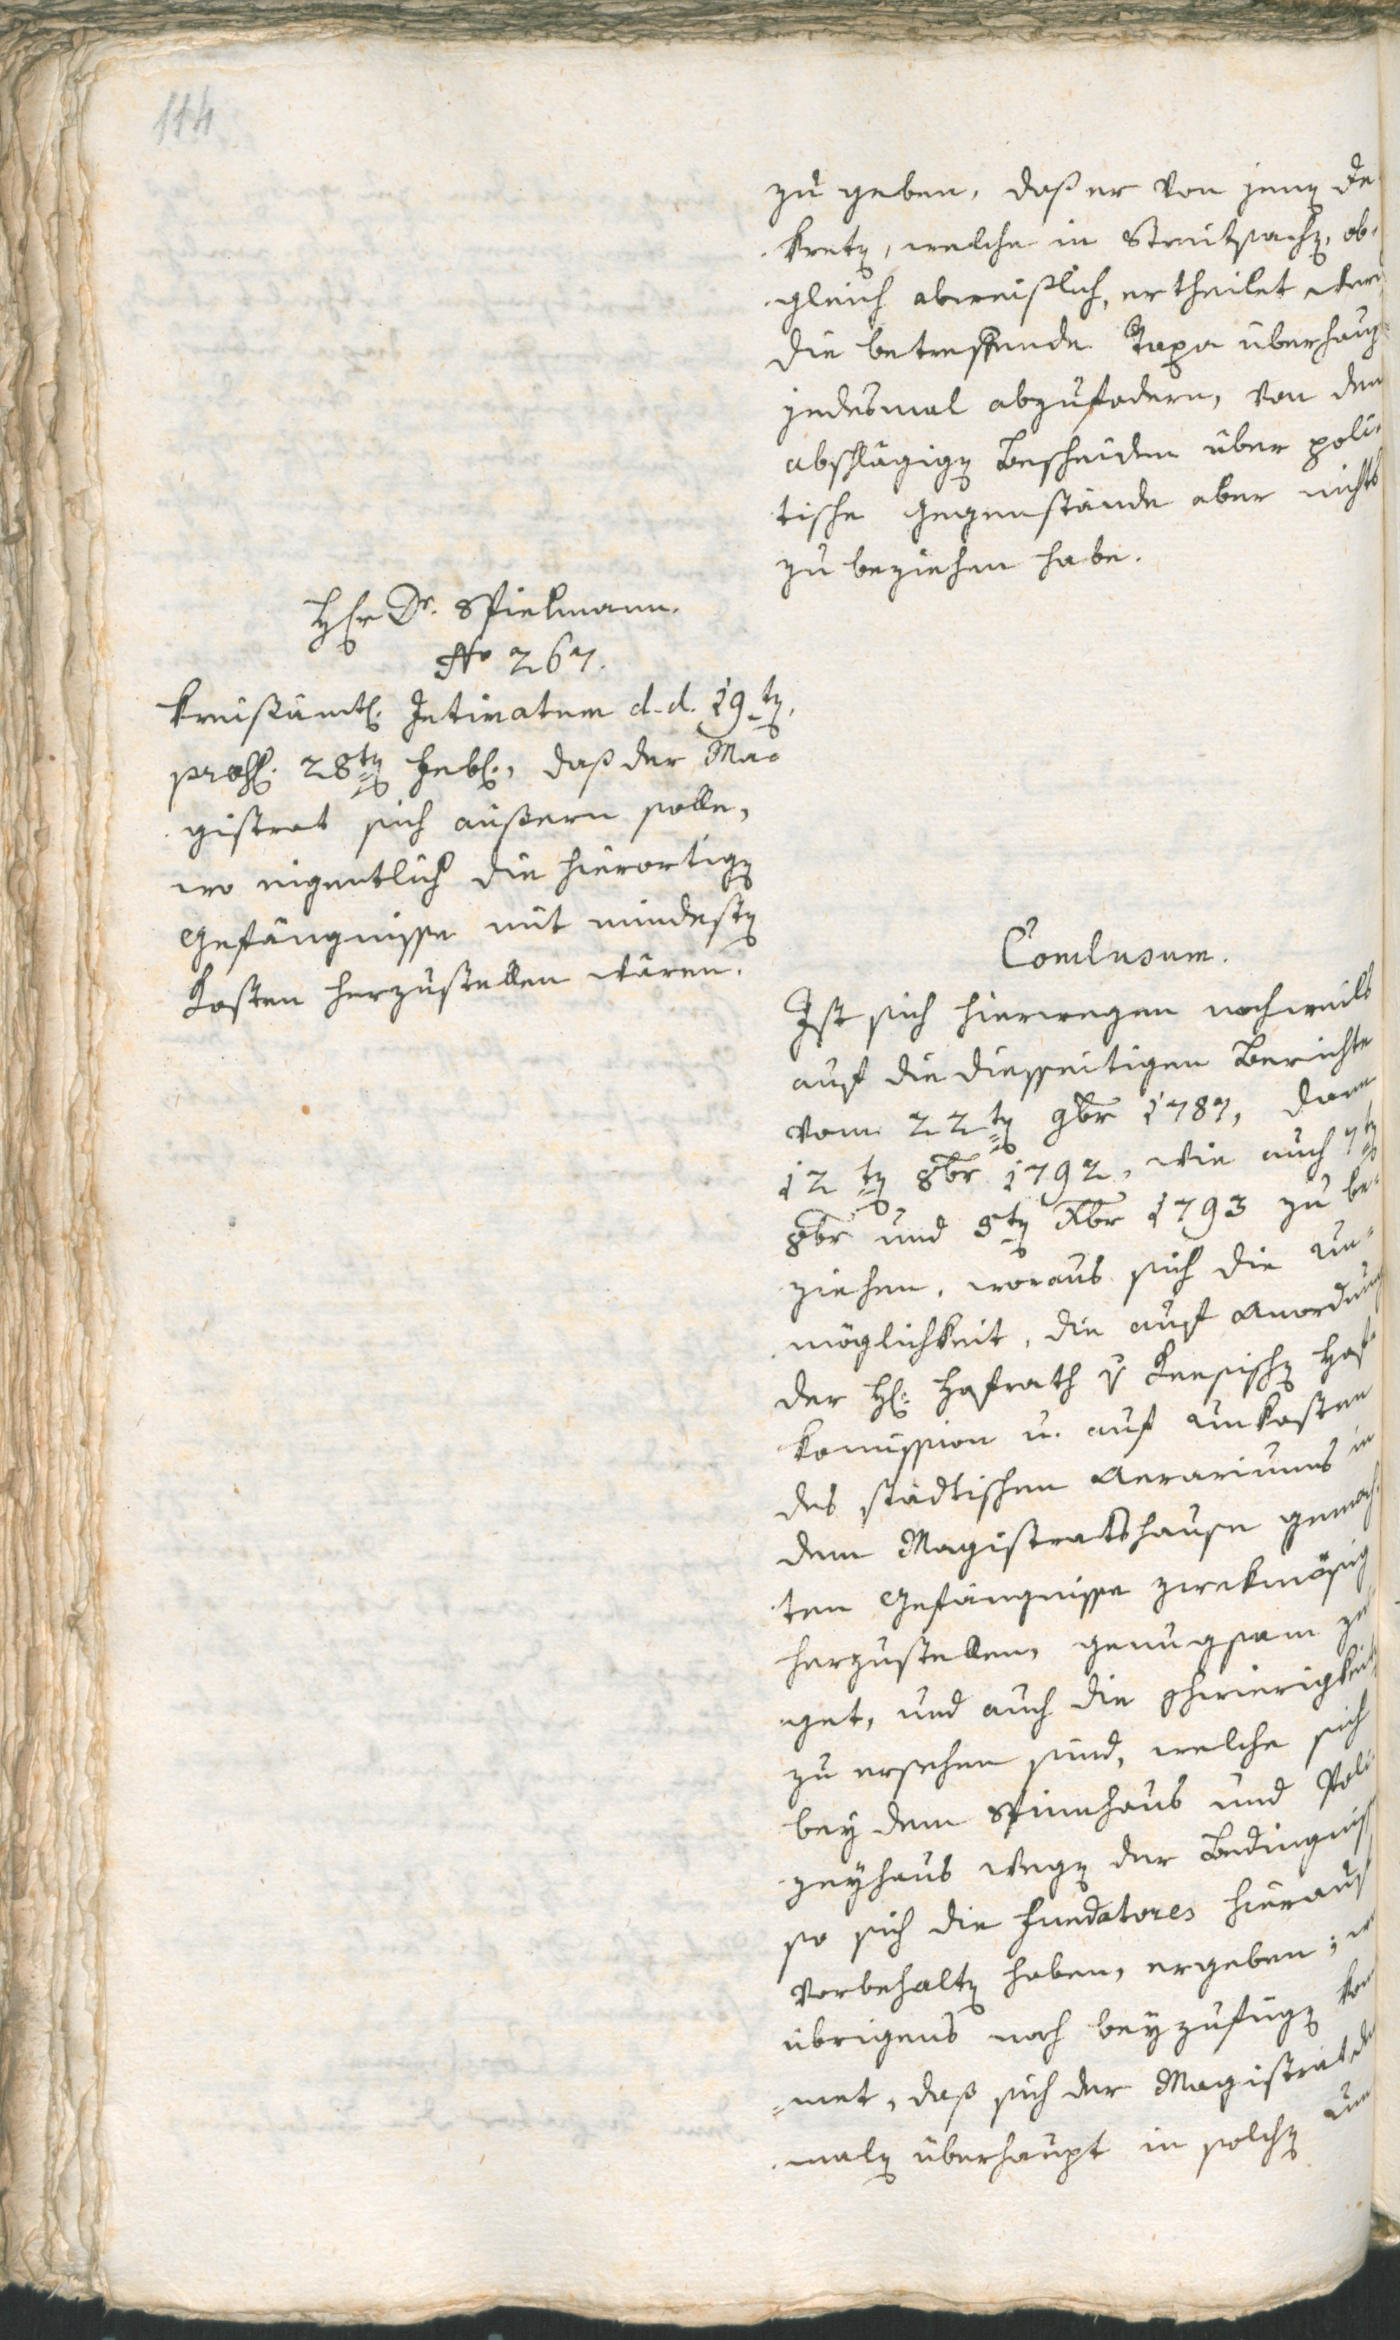 114
zu geben, daß er von jenen De
kreten, welche in Streitsachen, ob-
gleich abweißlich, ertheilet werden
die betreffende Taxa überhaupt
jedesmal abzufodern, von den
abschlägigen Bescheiden über poli-
tische Gegenstände aber nichts
zu beziehen habe.
Hr Dr. Spielmann.
No 267.
Kreisämtl. Intimatum d. d. 19ten,
praes. 28ten Febr., daß der Ma-
gistrat sich äußern solle,
wo eigentlich die hierortigen
Gefängnisse mit mindesten
Kosten herzustellen wären.
Conclusum.
Ist sich hierwegen nochmals
auf die diesseitigen Berichte
vom 22ten 9br 1787, dann
12ten 8br 1792, wie auch 7ten
8br und 5ten Xbr 1793 zu be-
ziehen, woraus sich die Un-
möglichkeit, die auf Anordnung
der H. Hofrath v Keesischen Hof
kommission u. auf Unkosten
des städtischen Aerariums in
dem Magistratshause gemach-
ten Gefängnisse zwekmäßig
herzustellen, genugsam zei
get, und auch die Schwierigkeiten
zu ersehen sind, welche sich
bey dem Spinnhaus und Poli
zeyhaus wegen der Bedingniß
so sich die Fundatores hierauf
vorbehalten haben, ergeben;
übrigens noch beyzufügen kom
met, daß sich der Magistrat da
malen überhaupt in solchen Um